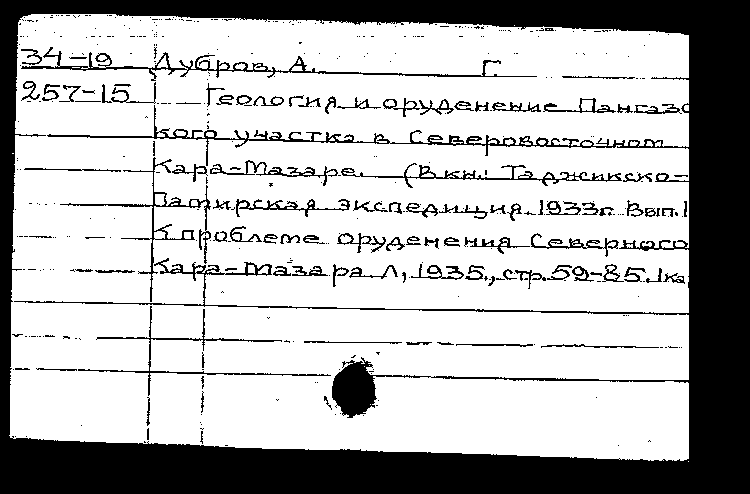 34-19 Дубров, А. Г.
257-15 Геология и оруденение Пангазс
кого участка в Северовосточном
Кара-Мазаре. (В кн.: Таджикско-
Памирская экспедиция. 1933г. Вып.1
К проблеме оруденения Северного
Кара-Мазара Л, 1935., стр. 59-85. 1ка